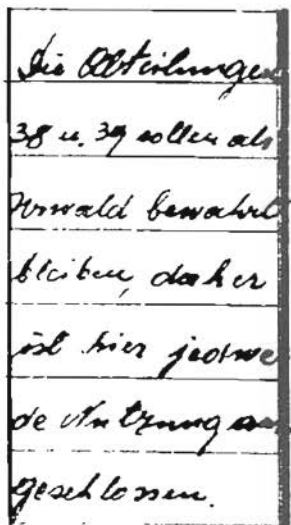 Die Abteilungen
38 u. 39 sollen als
Urwald bewahrt
bleiben, daher
ist hier jedwe
de Nutzung aus
geschlossen.